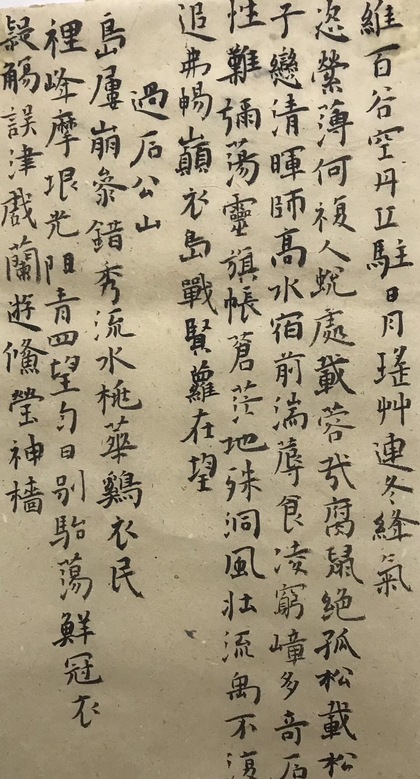 維百谷空丹丘駐日月瑤艸連冬絳氣
恣縈薄何複人蛻處載蓉我腐鼠絕孤松載松
子戀清暉師高水宿前湍蓐食淩窮嶂多奇石
性難彌蕩靈旗帳蒼茫地殊洞風壯流禹不復
追弗暢巔衣島戰賢蘿在望
過石公山
島屢崩參錯秀流水桃華鷄衣民
裡峰摩垠光阻青四望勻日別駘蕩鮮冠衣
觴誤津戲蘭遊儵瑩神檣